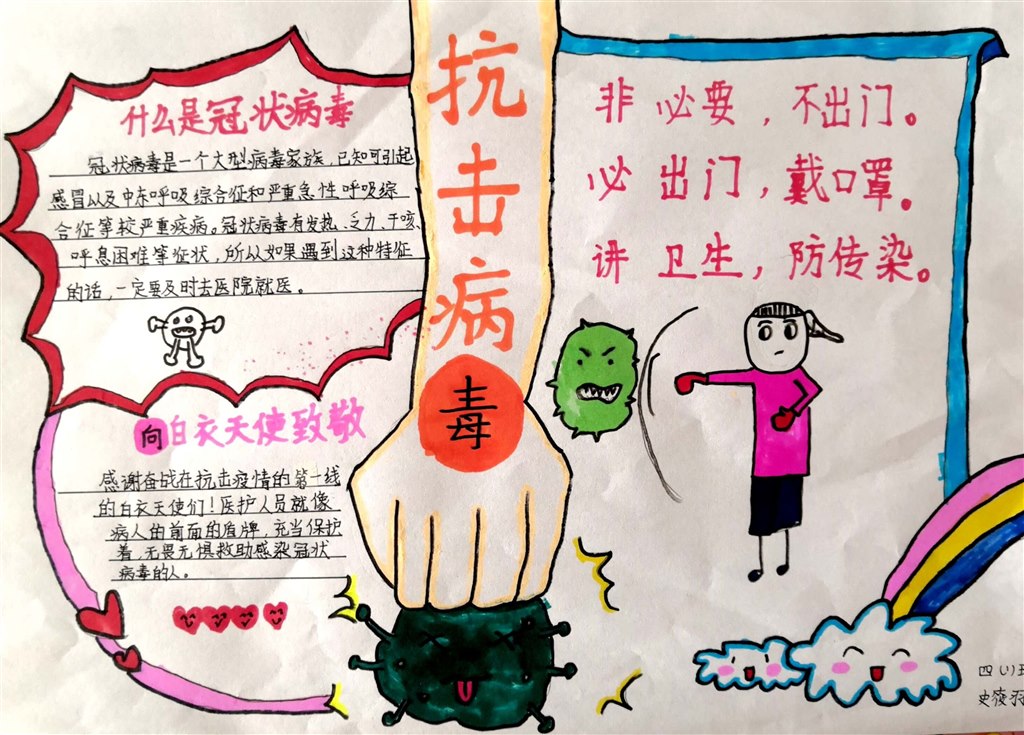 什么是冠状病毒
冠状病毒是一个大型病毒家族，已知可引起
感冒以及中东呼吸综合征和严重急性呼吸综
合征等较严重疾病。冠状病毒有发热、乏力、干咳、
呼息困难等症状，所以如果遇到这种特征
的话，一定要及时去医院就医。
向白衣天使致敬
感谢奋战在抗击疫情的第一线
的白衣天使们！医护人员就像
病人的前面的盾牌，充当保护
着，无畏无惧救助感染冠状
病毒的人。
抗
击
病
毒
非必要，不出门。
必出门，戴口罩。
讲卫生，防传染。
四（1）
史